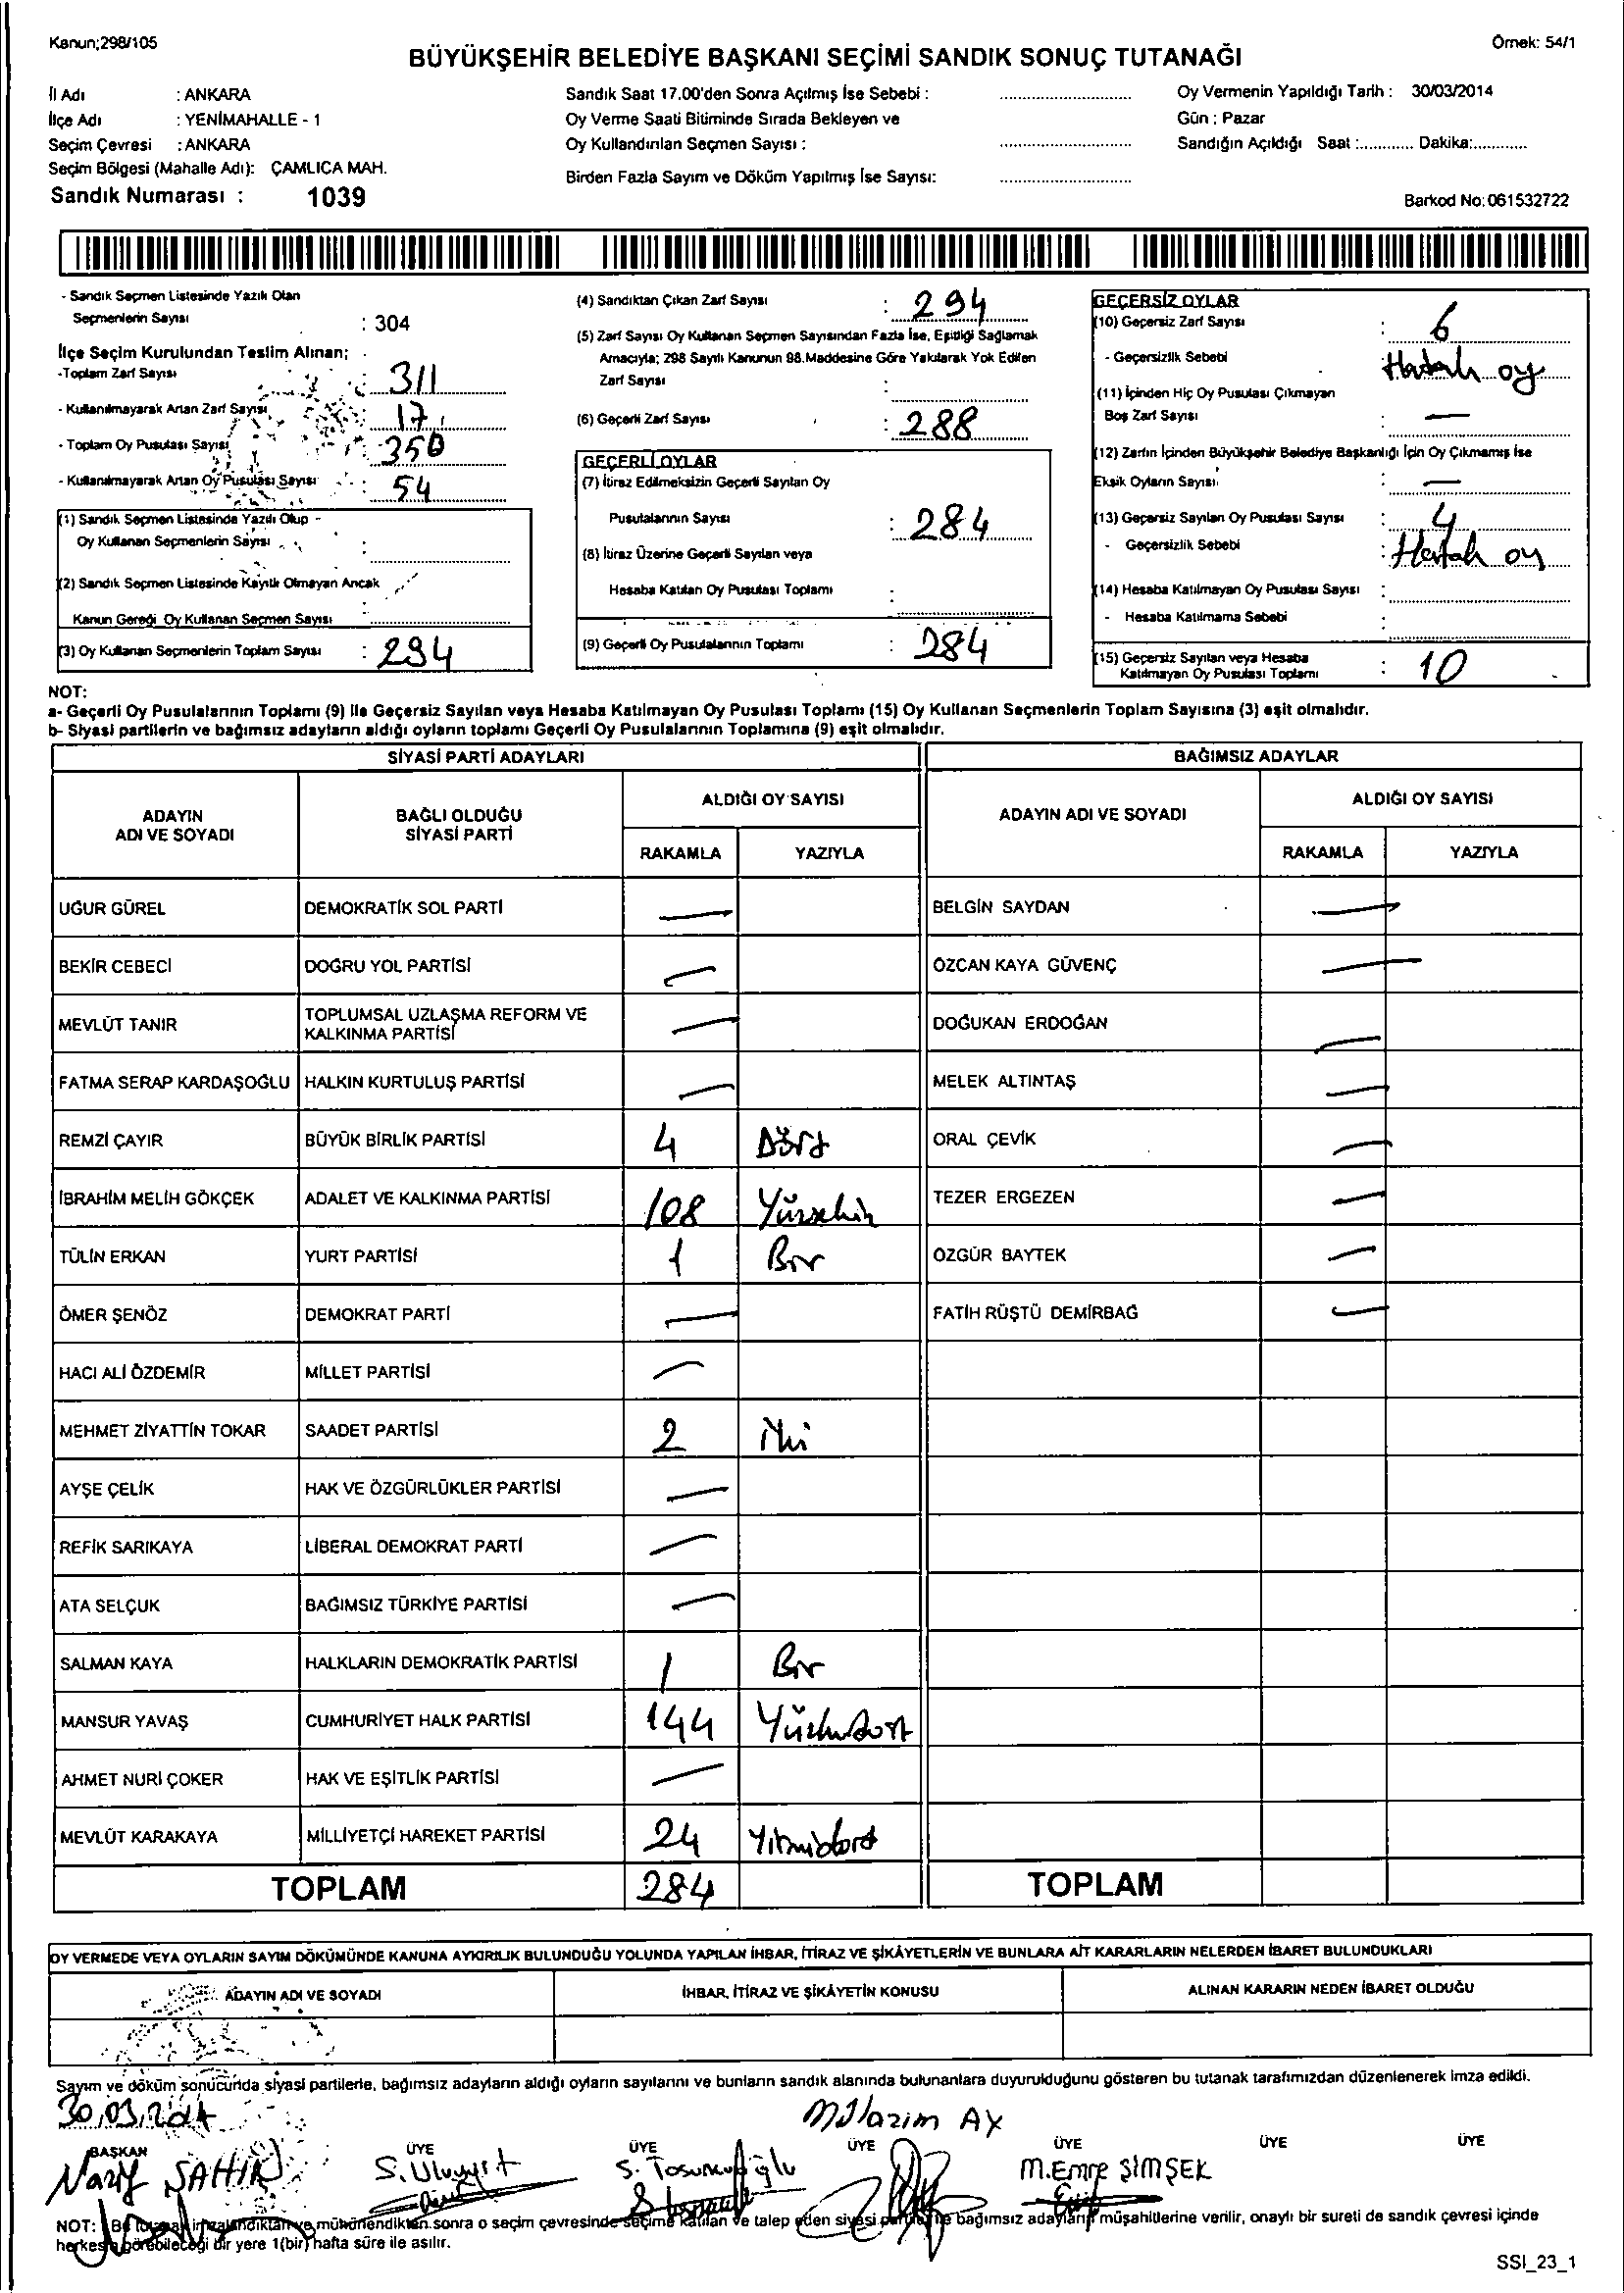 Kanun;298/105
Örnek: 54/1
BÜYÜKŞEHİR BELEDİYE BAŞKANI SEÇİMİ SANDIK SONUÇ TUTANAĞI
İl Adı : ANKARA
İlçe Adı : YENİMAHALLE - 1
Seçim Çevresi : ANKARA
Seçim Bölgesi (Mahalle Adı): ÇAMLICA MAH.
Sandık Numarası : 1039
Sandık Saat 17.00'den Sonra Açılmış İse Sebebi :
Oy Verme Saati Bitiminde Sırada Bekleyen ve
Oy Kullandırılan Seçmen Sayısı :
Birden Fazla Sayım ve Döküm Yapılmış İse Sayısı:
Oy Vermenin Yapıldığı Tarih : 30/03/2014
Gün : Pazar
Sandığın Açıldığı Saat :............ Dakika:............
Barkod No: 061532722
- Sandık Seçmen Listesinde Yazılı Olan
Seçmenlerin Sayısı : 304
İlçe Seçim Kurulundan Teslim Alınan;
-Toplam Zarf Sayısı : 311
- Kullanılmayarak Artan Zarf Sayısı : 17
- Toplam Oy Pusulası Sayısı : 350
- Kullanılmayarak Artan Oy Pusulası Sayısı : 54
(1) Sandık Seçmen Listesinde Yazılı Olup -
Oy Kullanan Seçmenlerin Sayısı :
(2) Sandık Seçmen Listesinde Kayıtlı Olmayan Ancak
Kanun Gereği Oy Kullanan Seçmen Sayısı :
(3) Oy Kullanan Seçmenlerin Toplam Sayısı : 294
(4) Sandıktan Çıkan Zarf Sayısı : 294
(5) Zarf Sayısı Oy Kullanan Seçmen Sayısından Fazla İse, Eşitliği Sağlamak
Amacıyla; 298 Sayılı Kanunun 98.Maddesine Göre Yakılarak Yok Edilen
Zarf Sayısı :
(6) Geçerli Zarf Sayısı : 288
GEÇERLİ OYLAR
(7) İtiraz Edilmeksizin Geçerli Sayılan Oy
Pusulalarının Sayısı : 284
(8) İtiraz Üzerine Geçerli Sayılan veya
Hesaba Katılan Oy Pusulası Toplamı :
(9) Geçerli Oy Pusulalarının Toplamı : 284
GEÇERSİZ OYLAR
(10) Geçersiz Zarf Sayısı : 6
- Geçersizlik Sebebi : Hatalı oy
(11) İçinden Hiç Oy Pusulası Çıkmayan
Boş Zarf Sayısı : —
(12) Zarfın İçinden Büyükşehir Belediye Başkanlığı İçin Oy Çıkmamış İse
Eksik Oyların Sayısı : —
(13) Geçersiz Sayılan Oy Pusulası Sayısı : 4
- Geçersizlik Sebebi : Hatalı oy
(14) Hesaba Katılmayan Oy Pusulası Sayısı :
- Hesaba Katılmama Sebebi :
(15) Geçersiz Sayılan veya Hesaba
Katılmayan Oy Pusulası Toplamı : 10
NOT:
a- Geçerli Oy Pusulalarının Toplamı (9) ile Geçersiz Sayılan veya Hesaba Katılmayan Oy Pusulası Toplamı (15) Oy Kullanan Seçmenlerin Toplam Sayısına (3) eşit olmalıdır.
b- Siyasi partilerin ve bağımsız adayların aldığı oyların toplamı Geçerli Oy Pusulalarının Toplamına (9) eşit olmalıdır.
SİYASİ PARTİ ADAYLARI
BAĞIMSIZ ADAYLAR
ADAYIN ADI VE SOYADI
BAĞLI OLDUĞU SİYASİ PARTİ
ALDIĞI OY SAYISI
ADAYIN ADI VE SOYADI
ALDIĞI OY SAYISI
RAKAMLA YAZIYLA
RAKAMLA YAZIYLA
UĞUR GÜREL DEMOKRATİK SOL PARTİ — BELGİN SAYDAN —
BEKİR CEBECİ DOĞRU YOL PARTİSİ — ÖZCAN KAYA GÜVENÇ —
MEVLÜT TANIR TOPLUMSAL UZLAŞMA REFORM VE KALKINMA PARTİSİ — DOĞUKAN ERDOĞAN —
FATMA SERAP KARDAŞOĞLU HALKIN KURTULUŞ PARTİSİ — MELEK ALTINTAŞ —
REMZİ ÇAYIR BÜYÜK BİRLİK PARTİSİ 4 Dört ORAL ÇEVİK —
İBRAHİM MELİH GÖKÇEK ADALET VE KALKINMA PARTİSİ 108 Yüzsekiz TEZER ERGEZEN —
TÜLİN ERKAN YURT PARTİSİ 1 Bir ÖZGÜR BAYTEK —
ÖMER ŞENÖZ DEMOKRAT PARTİ — FATİH RÜŞTÜ DEMİRBAĞ —
HACI ALİ ÖZDEMİR MİLLET PARTİSİ —
MEHMET ZİYATTİN TOKAR SAADET PARTİSİ 2 iki
AYŞE ÇELİK HAK VE ÖZGÜRLÜKLER PARTİSİ —
REFİK SARIKAYA LİBERAL DEMOKRAT PARTİ —
ATA SELÇUK BAĞIMSIZ TÜRKİYE PARTİSİ —
SALMAN KAYA HALKLARIN DEMOKRATİK PARTİSİ 1 Bir
MANSUR YAVAŞ CUMHURİYET HALK PARTİSİ 144
AHMET NURİ ÇOKER HAK VE EŞİTLİK PARTİSİ —
MEVLÜT KARAKAYA MİLLİYETÇİ HAREKET PARTİSİ 24 Yirmidört
TOPLAM 284 TOPLAM
OY VERMEDE VEYA OYLARIN SAYIM DÖKÜMÜNDE KANUNA AYKIRILIK BULUNDUĞU YOLUNDA YAPILAN İHBAR, İTİRAZ VE ŞİKÂYETLERİN VE BUNLARA AİT KARARLARIN NELERDEN İBARET BULUNDUKLARI
ADAYIN ADI VE SOYADI
İHBAR, İTİRAZ VE ŞİKÂYETİN KONUSU
ALINAN KARARIN NEDEN İBARET OLDUĞU
Sayım ve döküm sonucunda siyasi partilerle, bağımsız adayların aldığı oyların sayılarını ve bunların sandık alanında bulunanlara duyurulduğunu gösteren bu tutanak tarafımızdan düzenlenerek imza edildi.
30.03.2014
Mülazim AY
BAŞKAN ÜYE ÜYE ÜYE ÜYE ÜYE ÜYE
Nazif ŞAHİN S. Uluyurt S. Tosunoğlu M.Emre ŞİMŞEK
NOT: Bu tutanak imzalandıktan ve mühürlendikten sonra o seçim çevresinde seçime katılan ve talep eden siyasi partilerle bağımsız adayların müşahitlerine verilir, onaylı bir sureti de sandık çevresi içinde
herkesin görebileceği bir yere 1(bir) hafta süre ile asılır.
SSI_23_1